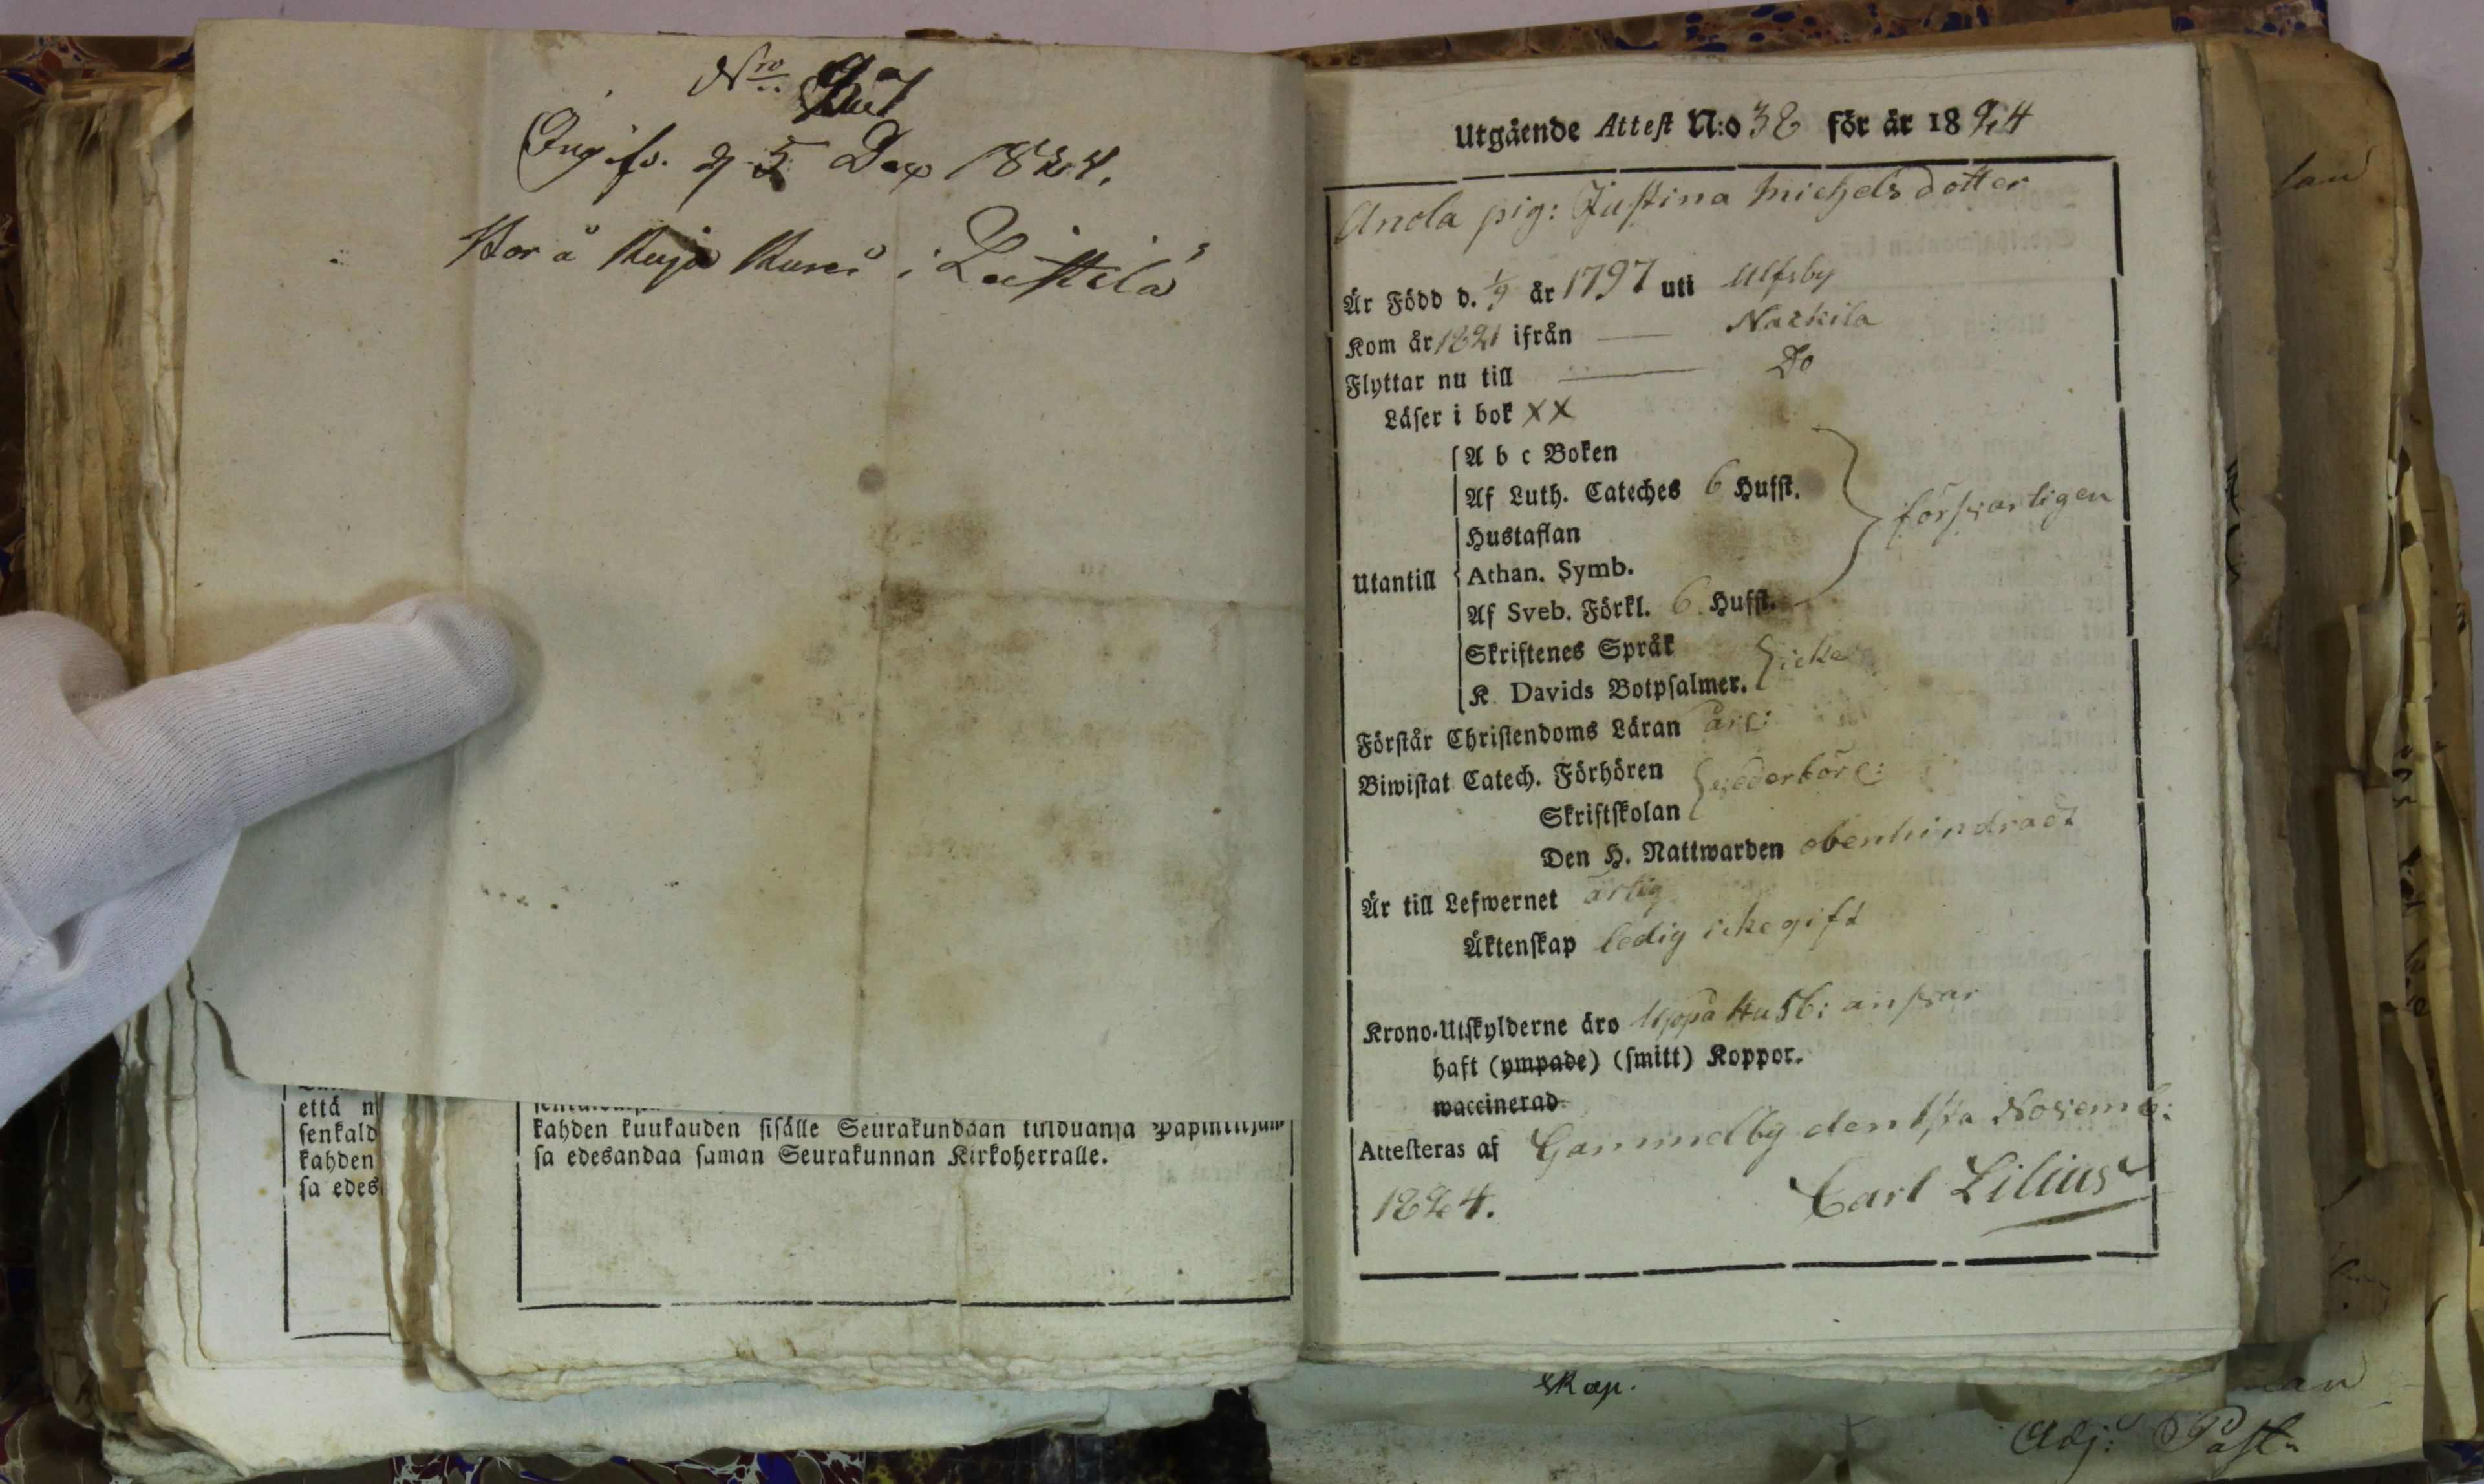 Nro
Ingifv. d 5 Dec 1824.
Har å Kuja Kurcò i Leistilä
että n
senkald
kahden
sa edes
kahden kuukauden sisälle Seurakundaan tulduansa
sa edesandaa saman Seurakunnan Kirkoherralle.
Utgående Attest N:o 32 för år 1824
Anola pig: Justina Michelsdotter
Är Född d. 1/9 år 1797 uti Ulfsby
Kom år 1821 ifrån Nackila
Flyttar nu till Do
Läser i bok XX
A b c Boken
Af Luth. Cateches 6 Hufst.
försvarligen
Hustaflan
Utantill Athan. Symb.
Af Sveb. Förkl. 6 Hufst.
Skriftenes Språk
icke
K. Davids Botpsalmer.
Förstår Christendoms Läran
Biwistat Catech. Förhören vederbörl:
Skriftskolan
Den H. Nattwarden obenhindradt
Är till Lefwernet ärlig
Äktenskap ledig icke gift
Krono-Utskylderne äro Uppå Husb: ansvar
haft (ympade) (smitt) Koppor.
waccinerad
Attesteras af Gammelby den 1sta Novemb:
1824. Carl Lilius
skap.
Adj: Past.